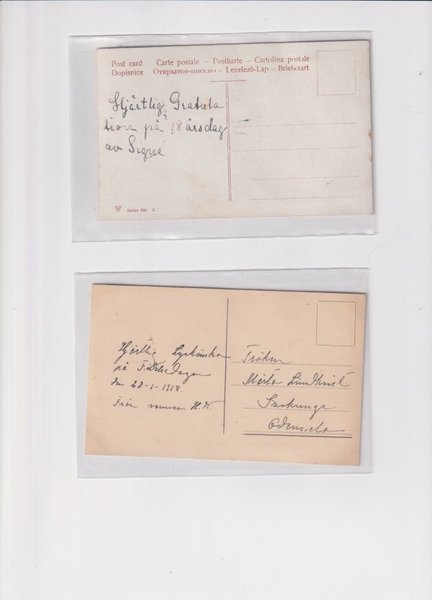 Post card Carte postale – Postkarte – Cartolina postale
Dopisnice Открытое письмо – Levelező-Lap – Briefkaart
Hjärtlig Gratula
tion på 18 årsdag
av Signe
Hjärtlig Lyckönskan
på Födelsedagen
den 28-1-1918
Från
Fröken
Märta Lundkvist